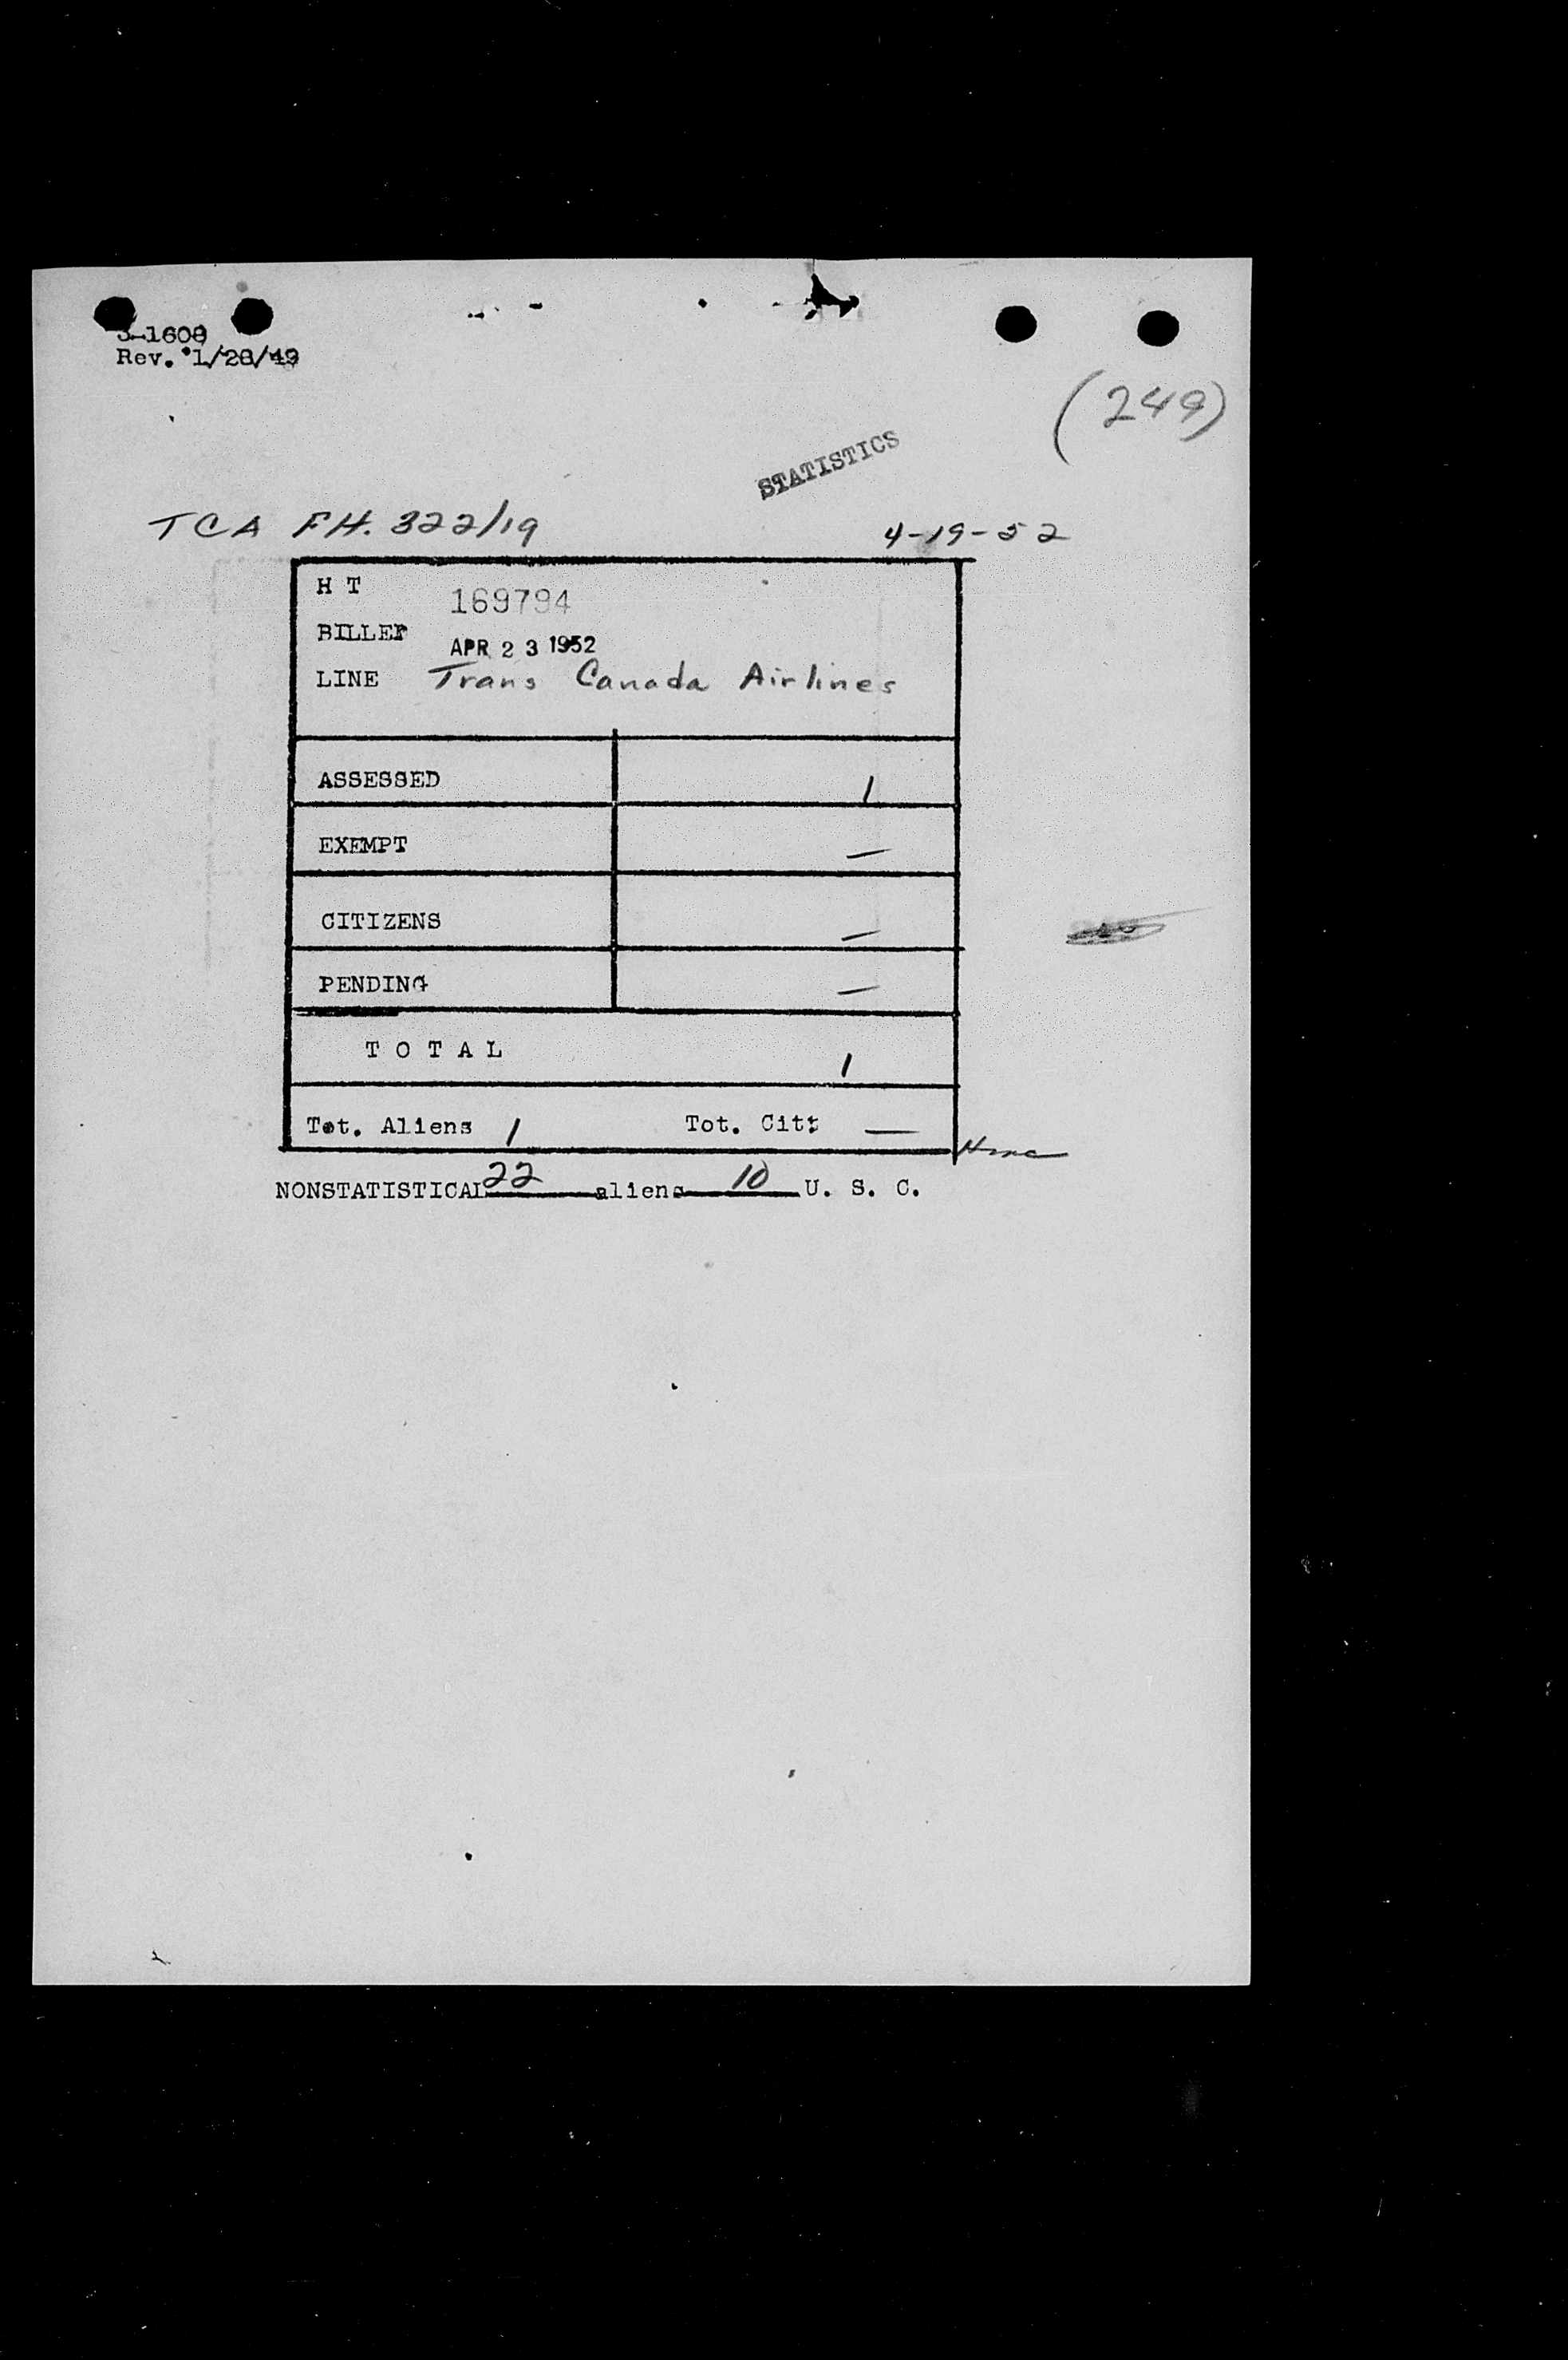 3-1608
Rev. 1/28/49
(249)
STATISTICS
TCA FH. 322/19 4-19-52
H T 169794
BILLED APR 23 1952
LINE Trans Canada Airlines
ASSESSED 1
EXEMPT —
CITIZENS —
PENDING —
TOTAL 1
Tot. Aliens 1 Tot. Cit: —
NONSTATISTICAL 22 aliens 10 U. S. C.